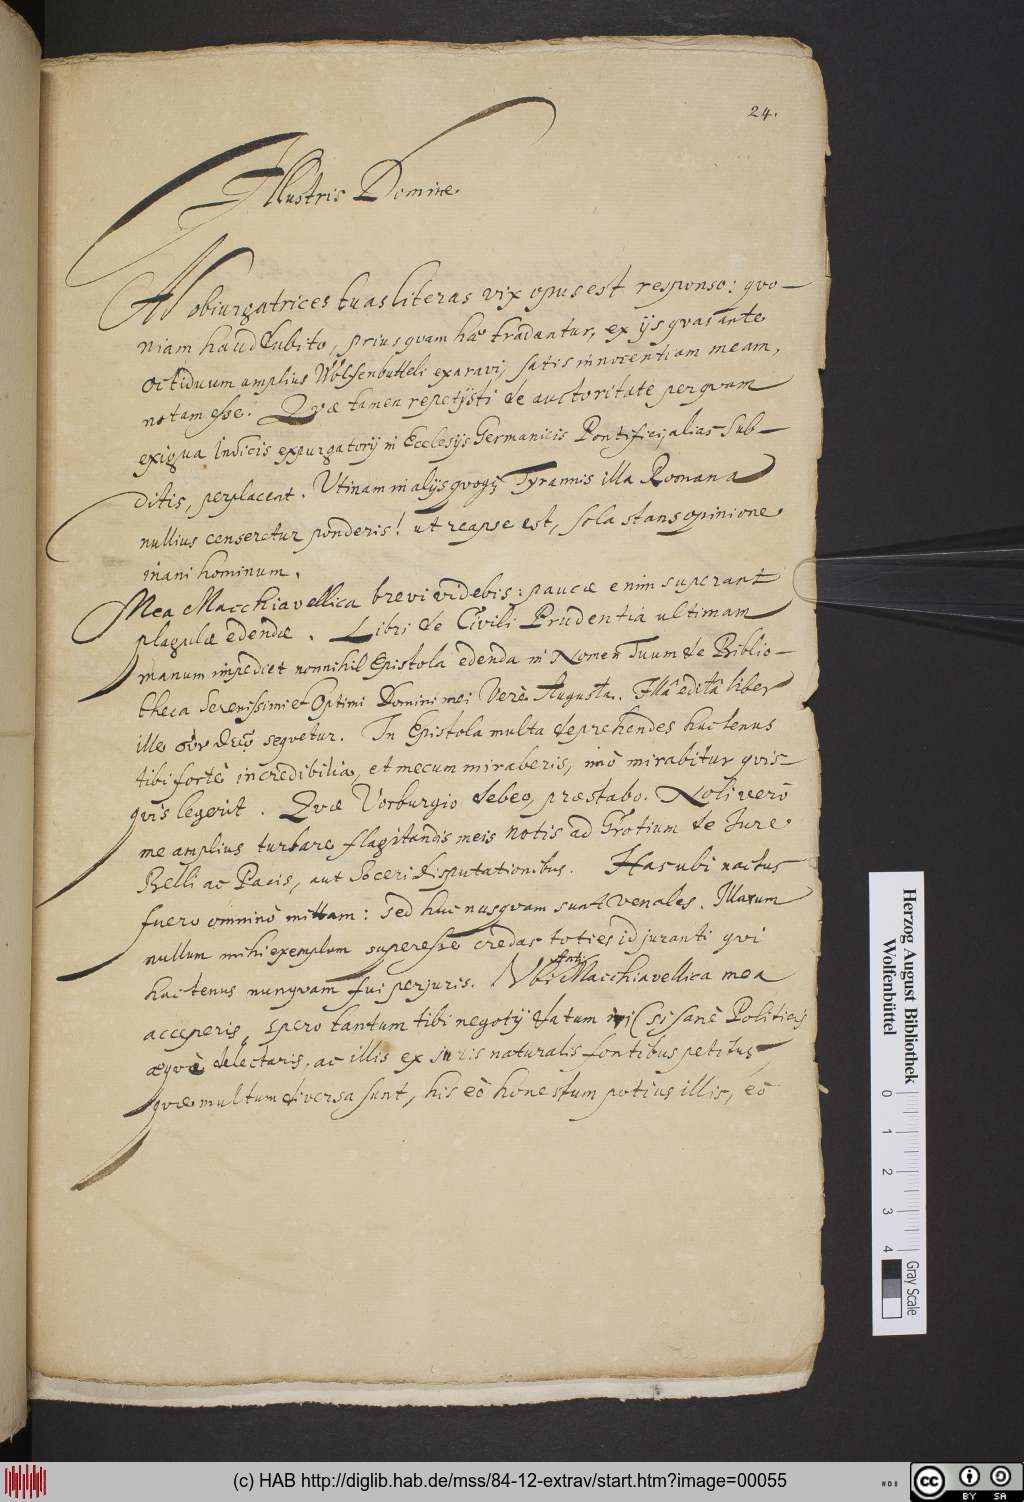 24.
Illustris Domine.
Ad obiurgatrices tuas literas vix opus est responso: quo-
niam haud dubito, prius quam hae tradantur, ex ijs quas ante
octiduum amplius Wölfenbutteli exaravi, satis innocentiam meam,
notam esse. Quae tamen repetijsti de auctoritate perquam
exigua Indicis expurgatorij in Ecclesijs Germanicis Pontifici alias sub-
ditis, perplacent. Utinam in alijs quoque Tyrannis illa Romana
nullius censeretur ponderis! ut reapse est, sola stans opinione
inani hominum.
Mea Macchiavellica brevi videbis: paucae enim superant
plagulae edendae. Libri de Civili Prudentia ultimam
manum impediet nonnihil Epistola edenda in Nomen Tuum de Biblio-
theca Serenissimi et Optimi Domini mei Verè Augusta. Illâ editâ liber
ille σὺν θεῷ sequetur. In Epistola multa deprehendes hactenus
tibi fortè incredibilia, et mecum miraberis, imò mirabitur quis-
quis legerit. Quae Vorburgio debeo, praestabo. Noli verò
me amplius turbare flagitandis meis notis ad Grotium de Jure
Belli ac Pacis, aut Soceri disputationibus. Has ubi nactus
fuero omninò mittam: sed huc nusquam sunt venales. Illarum
nullum mihi exemplum superesse credas toties id juranti qui
hactenus nunquam fui perjuris. Ubi Anti Macchiavellica mea
acceperis, spero tantum tibi negotij datum iri (si sanè Politicis
aequè delectaris, ac illis ex juris naturalis fontibus petitus,
quae multum diversa sunt, his eò honestum potius illis, eò
(c) HAB http://diglib.hab.de/mss/84-12-extrav/start.htm?image=00055
Herzog August Bibliothek
Wolfenbüttel
0 1 2 3 4
Gray Scale
WDB
CC BY SA